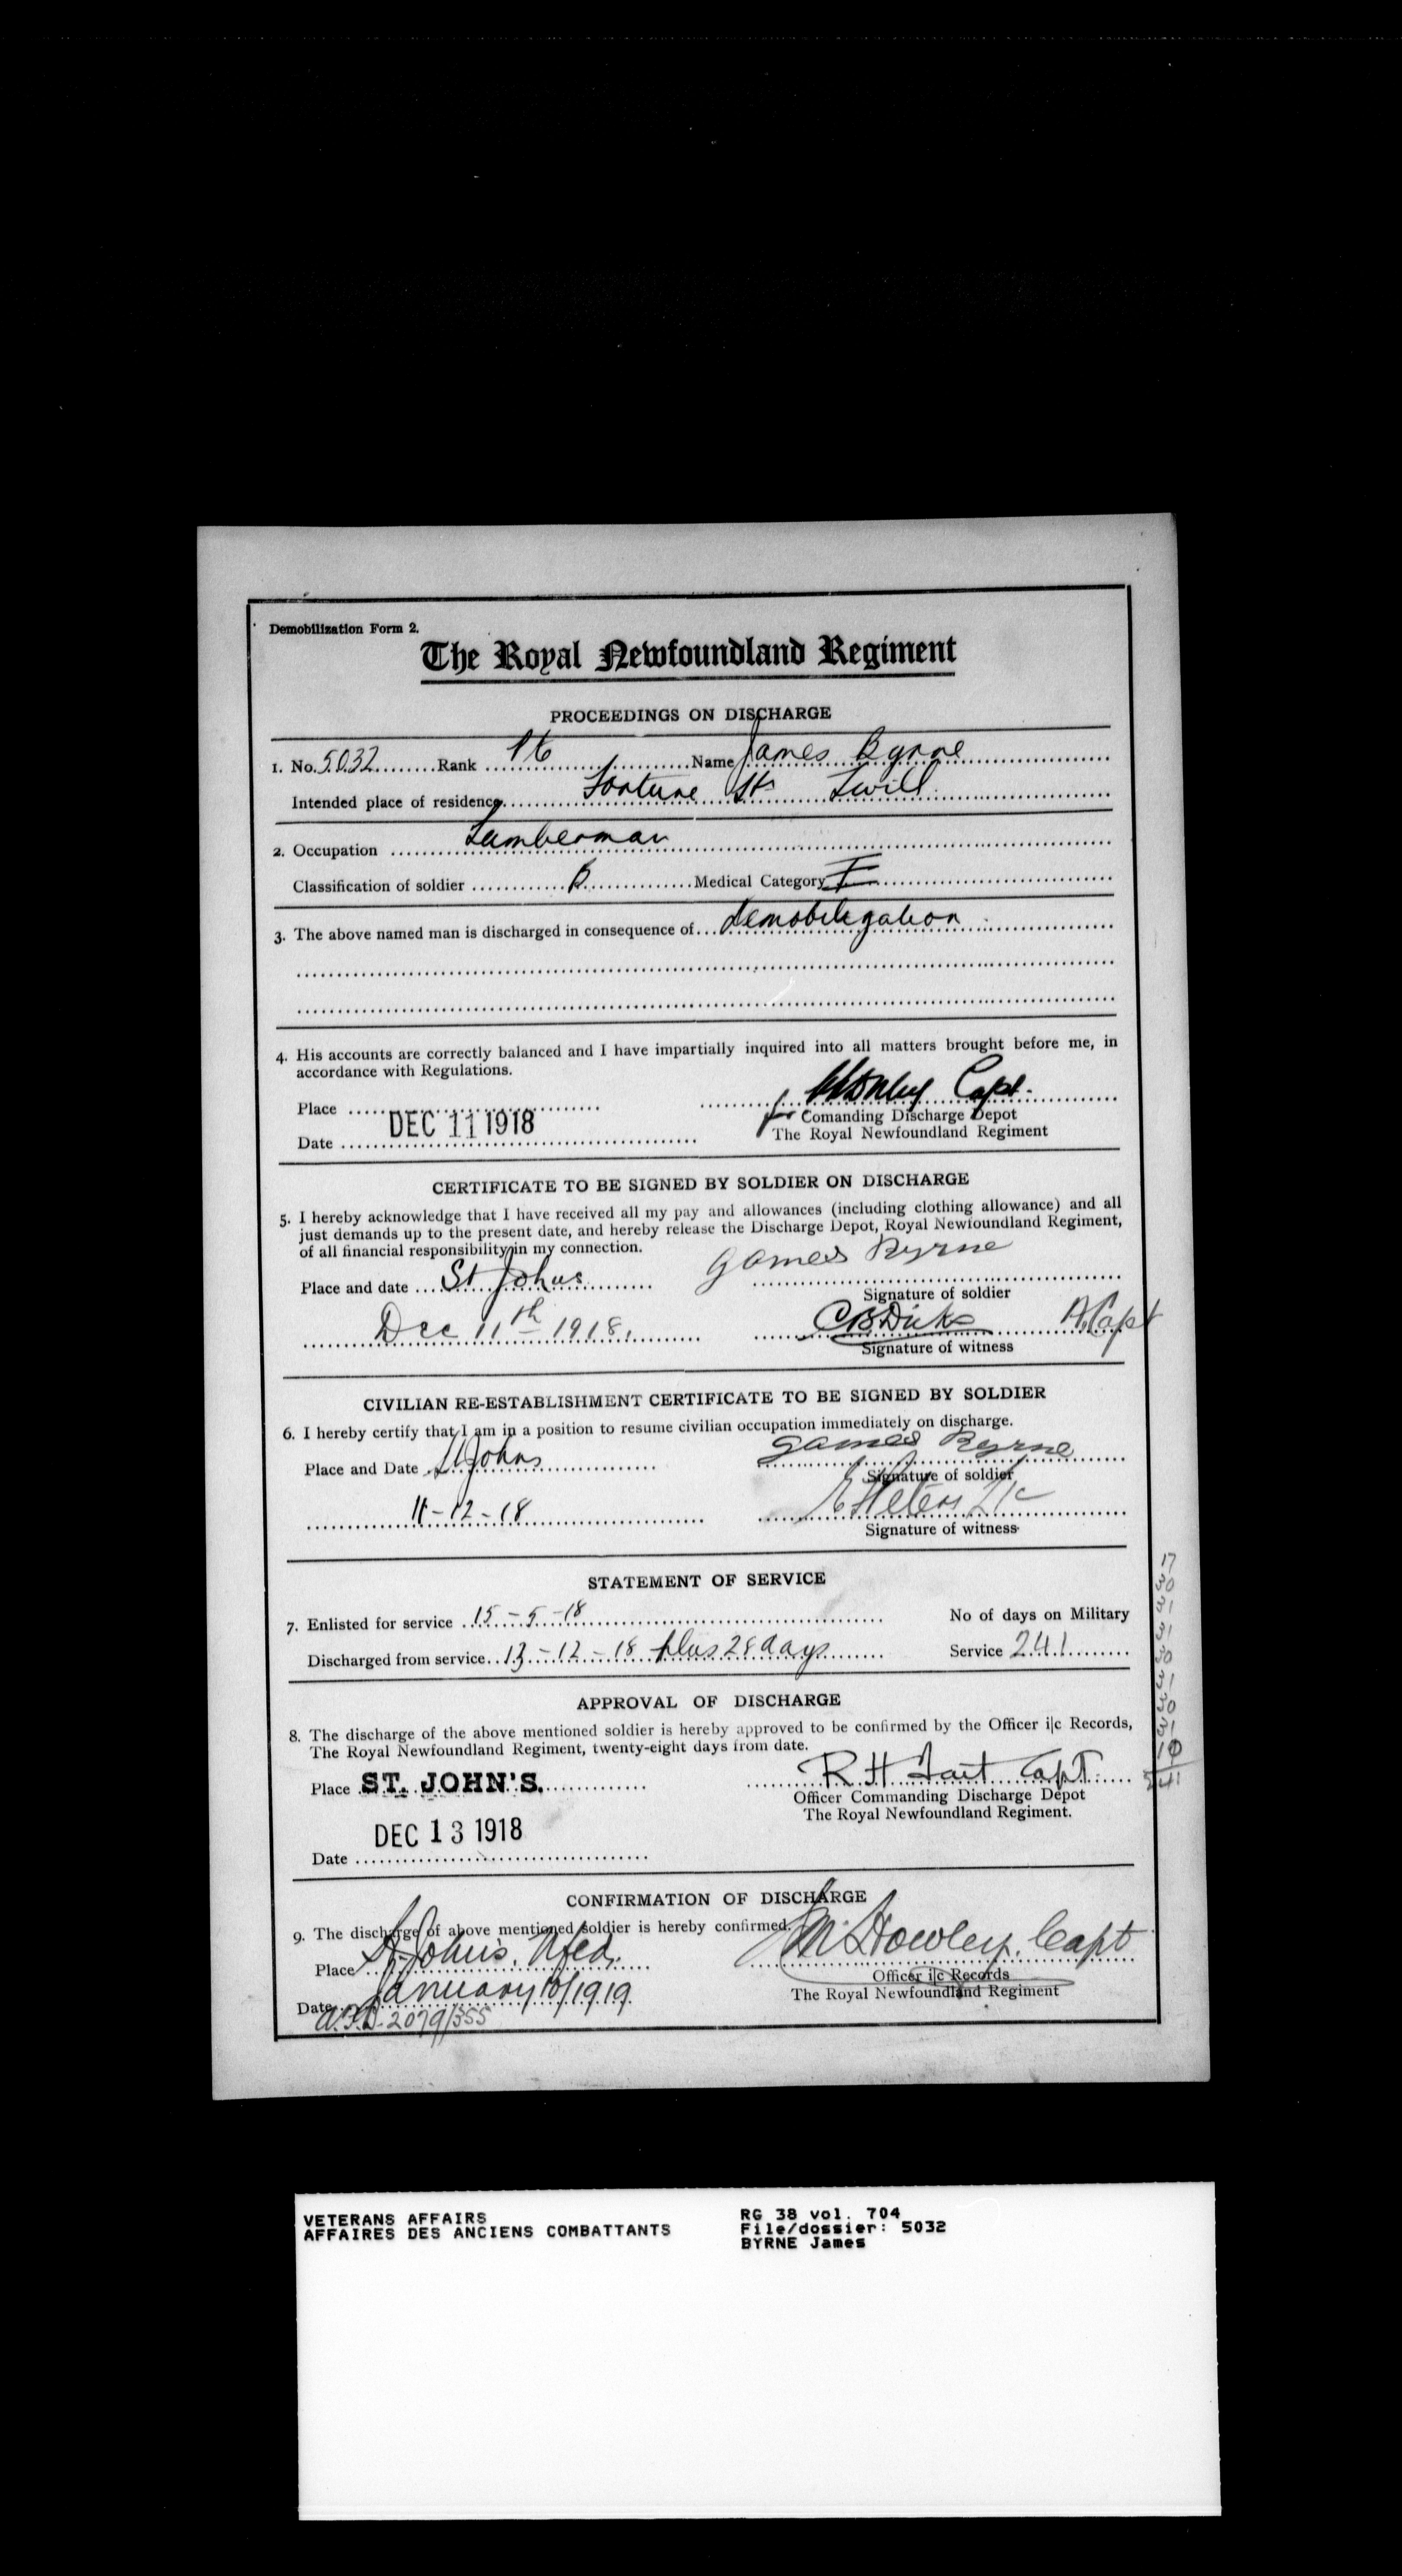 Demobilization Form 2.
The Royal Newfoundland Regiment
PROCEEDINGS ON DISCHARGE
1. No. 5032 Rank Pte Name James Byrne
Intended place of residence Fortune Hr Twill
2. Occupation Lumberman
Classification of soldier B Medical Category I
3. The above named man is discharged in consequence of demobilization
4. His accounts are correctly balanced and I have impartially inquired into all matters brought before me, in
accordance with Regulations.
Capt.
Place
Comanding Discharge Depot
DEC 11 1918
Date
The Royal Newfoundland Regiment
CERTIFICATE TO BE SIGNED BY SOLDIER ON DISCHARGE
5. I hereby acknowledge that I have received all my pay and allowances (including clothing allowance) and all
just demands up to the present date, and hereby release the Discharge Depot, Royal Newfoundland Regiment,
of all financial responsibility in my connection.
James Byrne
Place and date St Johns
Signature of soldier
Dec 11th 1918. CBDicks A.Capt
Signature of witness
CIVILIAN RE-ESTABLISHMENT CERTIFICATE TO BE SIGNED BY SOLDIER
6. I hereby certify that I am in a position to resume civilian occupation immediately on discharge.
James Byrne
Place and Date St Johns
Signature of soldier
11-12-18
Signature of witness
STATEMENT OF SERVICE
7. Enlisted for service 15-5-18 No of days on Military
Discharged from service 13-12-18 plus 28 days Service 241
17
30
31
31
30
31
30
31
10
241
APPROVAL OF DISCHARGE
8. The discharge of the above mentioned soldier is hereby approved to be confirmed by the Officer i|c Records,
The Royal Newfoundland Regiment, twenty-eight days from date.
Place ST. JOHN'S. R H Tait Capt.
Officer Commanding Discharge Depot
The Royal Newfoundland Regiment.
DEC 13 1918
Date
CONFIRMATION OF DISCHARGE
9. The discharge of above mentioned soldier is hereby confirmed.
Place St. John's, Nfld. M Howley, Capt
Officer i|c Records
The Royal Newfoundland Regiment
Date January 10/1919
2079/355
VETERANS AFFAIRS
AFFAIRES DES ANCIENS COMBATTANTS
RG 38 vol. 704
File/dossier: 5032
BYRNE James